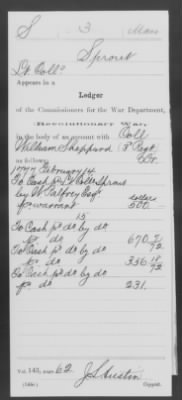 S 3 Mass
Sprout
Lt Coll.
Appears in a
Ledger
of the Commissioners for the War Department,
Revolutionary War,
in the body of an account with Coll
William Shepperd (3 Regt
as follows:
1777 February 14
To Cash pd Lt Coll Sprout
by W Palfrey Esqr dollars
pr warrant 500.
15
To Cash pd do by do
pr do 670 21/72
To Cash pd do by do
pr do 336 18/72
To Cash pd do by do
pr do 231.
Vol. 143, page 62. J S Austin
Copyist.